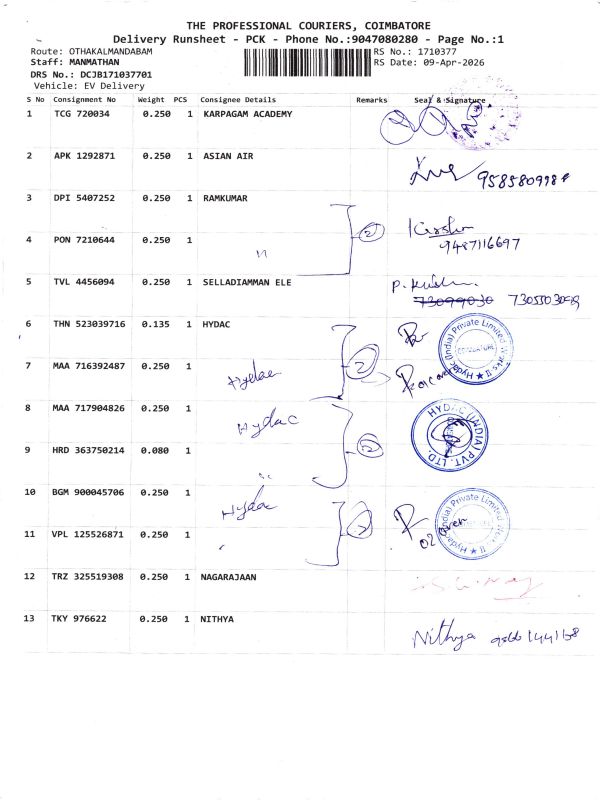 THE PROFESSIONAL COURIERS, COIMBATORE
Delivery Runsheet - PCK - Phone No.:9047080280 - Page No.:1
Route: OTHAKALMANDABAM RS No.: 1710377
Staff: MANMATHAN RS Date: 09-Apr-2026
DRS No.: DCJB171037701
Vehicle: EV Delivery
S No Consignment No Weight PCS Consignee Details Remarks Seal & Signature
1 TCG 720034 0.250 1 KARPAGAM ACADEMY
2 APK 1292871 0.250 1 ASIAN AIR
3 DPI 5407252 0.250 1 RAMKUMAR
2
4 PON 7210644 0.250 1 9487116697
5 TVL 4456094 0.250 1 SELLADIAMMAN ELE
6 THN 523039716 0.135 1 HYDAC
Hydac (India) Private Limited
7 MAA 716392487 0.250 1 Hydac 2
8 MAA 717904826 0.250 1 Hydac
HYDAC (INDIA) PVT. LTD.
9 HRD 363750214 0.080 1
10 BGM 900045706 0.250 1 Hydac
Hydac (India) Private Limited
11 VPL 125526871 0.250 1
12 TRZ 325519308 0.250 1 NAGARAJAAN
13 TKY 976622 0.250 1 NITHYA
Nithya